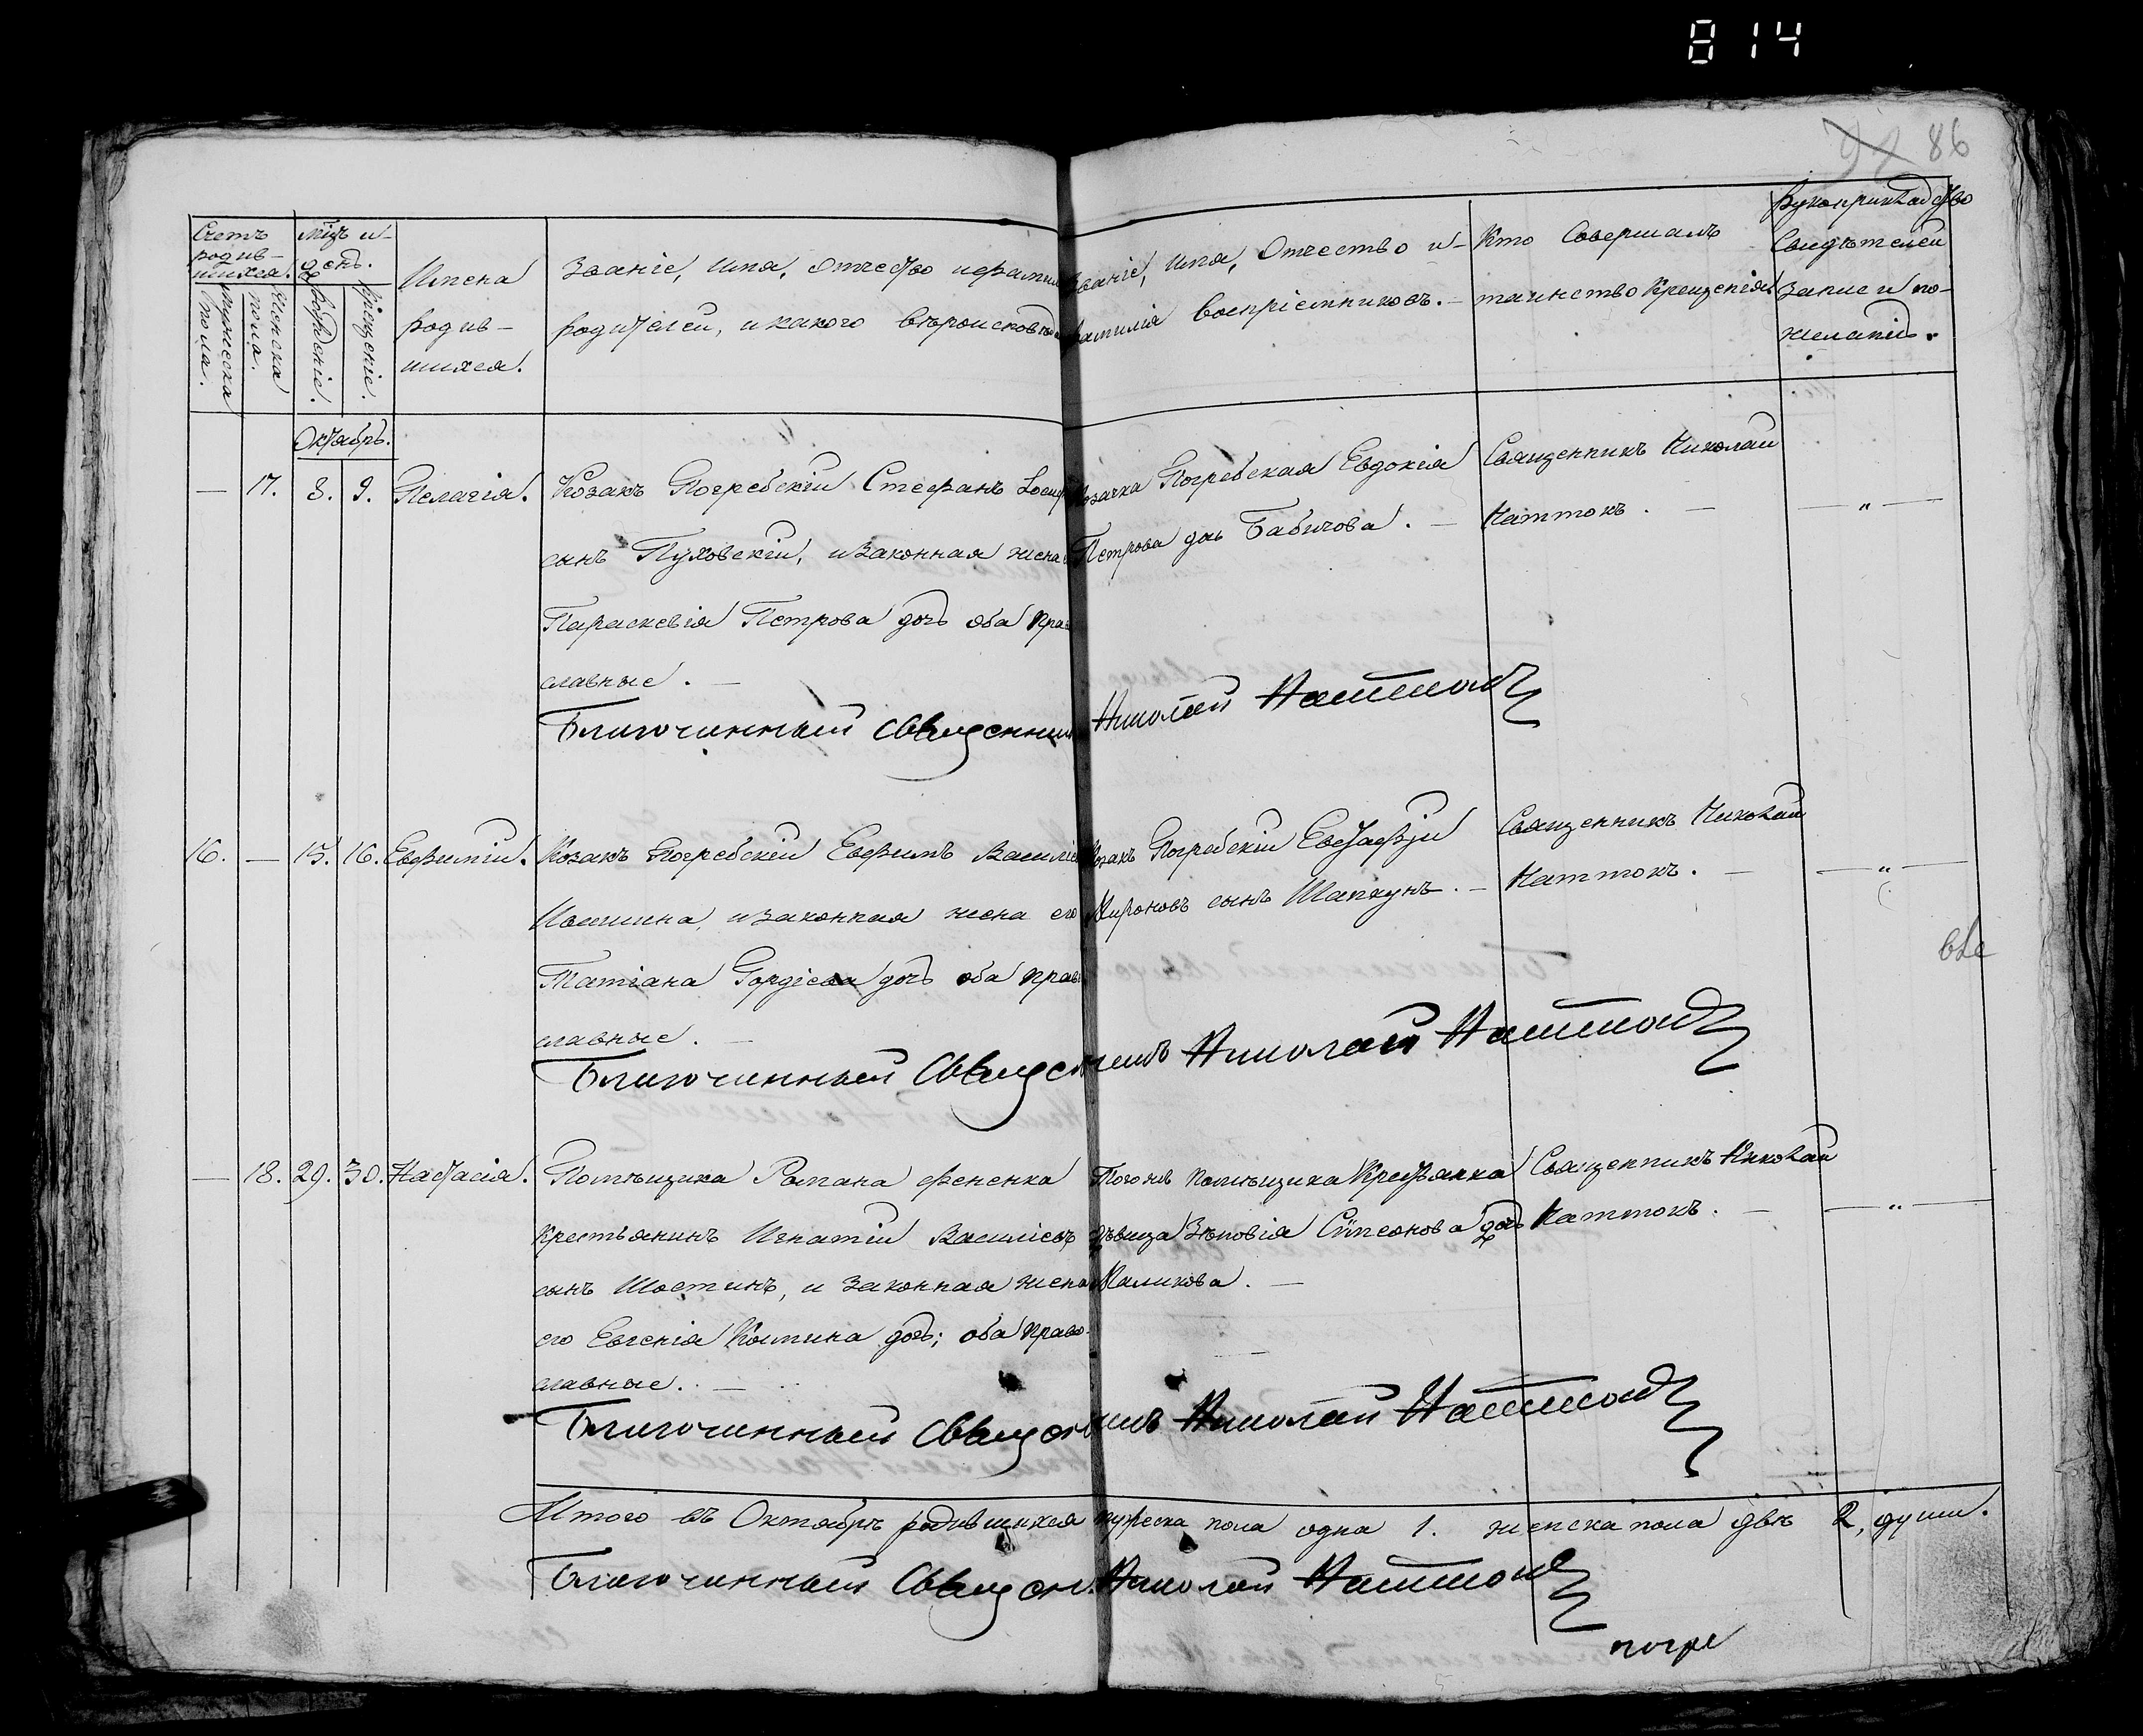 814
86
Счетъ родив-шихся.
Мужеска пола.
Женска пола.
Мцъ и день.
Рожденіе.
Крещеніе.
Имена родив-шихся.
Званіе, имя, отчество и фамилія
родителей, и какого вѣроисповѣданія
Званіе, имя, отчество и
фамилія воспріемниковъ. —
Кто совершалъ
таинство крещенія.
Рукоприкладство
свидѣтелей
записи по
желанію.
Октябрь.
— 17. 8. 9. Пелагія.
Козакъ Погребскій Стефанъ Іосиф
сынъ Пуховскій, и законная жена
Параскевія Петрова дочь оба пра
славные. —
Козачка Погребская Евдокія
Петрова дочь Бабичова. —
Священникъ Николай
Наттокъ. —
— „ —
Благочинный Священникъ Николай
16. — 15. 16. Евфимій.
Козакъ Погребскій Евфимъ Василіе
и законная жена его
Татіана Гордіева дочь оба прав
славные. —
Козакъ Погребскій Евстафій
Мироновъ сынъ Шапкунъ. —
Священникъ Николай
Наттокъ. —
— „ —
Благочинный Священникъ Николай
— 18. 29. 30. Настасія.
Помѣщика Романа Фененка
крестьянинъ Игнатій Василіевъ
сынъ Шостинъ, и законная жена
его Евгенія Козмина дочь; оба право-
славные. —
Того же помѣщика крестьянка
дѣвица Зѣновія Сѵмеонова дочь
Маликова. —
Священникъ Николай
Наттокъ. —
— „ —
Благочинный Священникъ Николай
Итого въ Октябрѣ родившихся мужеска пола одна 1. женска пола двѣ 2, души.
Благочинный Священ. Николай
погре